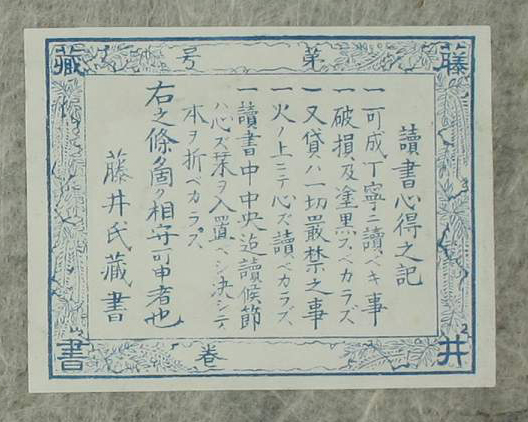 藤井
藏書
第 号
讀書心得之記
一 可成丁寧ニ讀ベキ事
一 破損及塗黒スベカラズ
一 又貸ハ一切嚴禁之事
一 火ノ上ニテ必ズ讀ベカラズ
一 讀書中中央迄讀候節
ハ必ズ栞ヲ入置ベシ決シテ
本ヲ折ベカラズ
右之條々相守可申者也
藤井氏藏書
卷